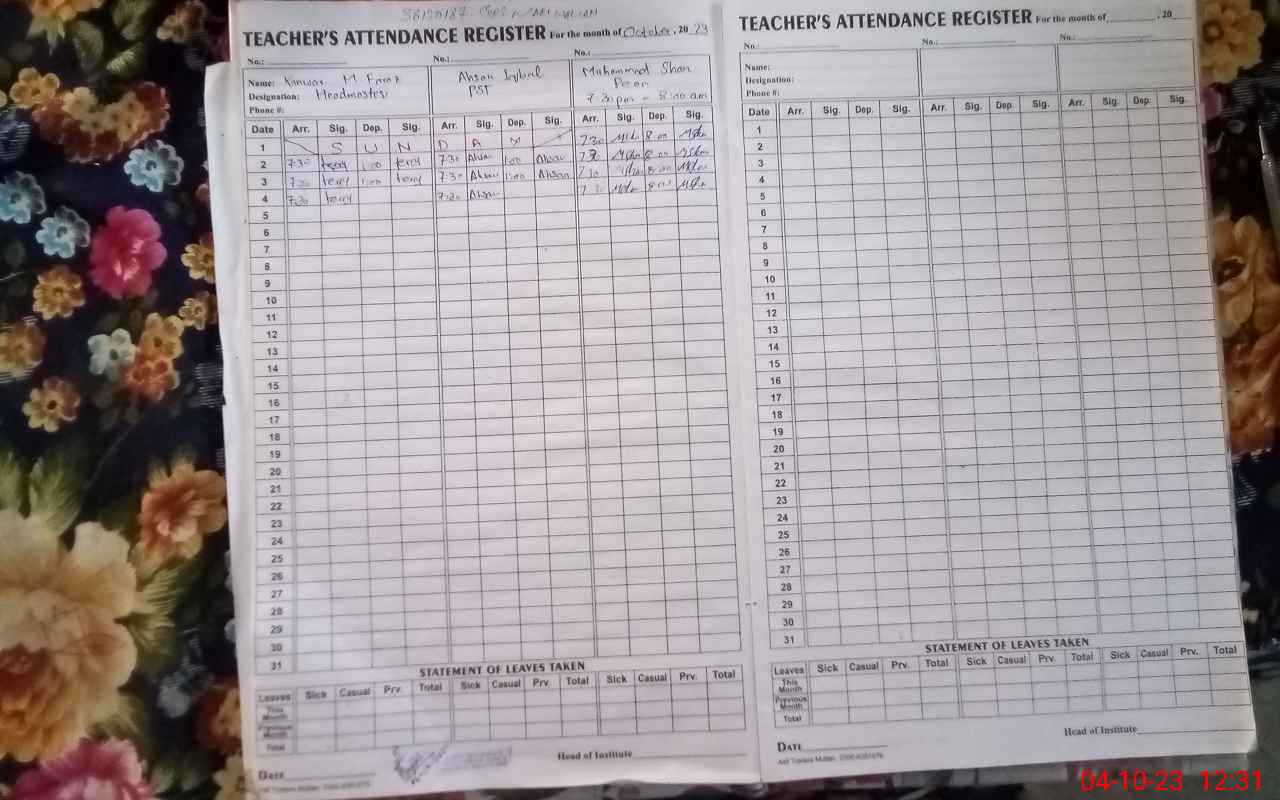 TEACHER'S ATTENDANCE REGISTER For the month of October, 2023
No.: No.: No.:
Name: Kanwar M Faraz
Designation: Headmaster
Phone #:
Ahsan Iqbal
PST
Muhammad Shan
Peer
7:30pm - 8:00 am
Date Arr. Sig. Dep. Sig. Arr. Sig. Dep. Sig. Arr. Sig. Dep. Sig.
1 S U N D A Y 7:30 8:00
2 7:30 1:00 7:30 Ahsan 1:00 Ahsan 7:30 8:00
3 7:30 1:00 7:30 Ahsan 1:00 Ahsan 7:30 8:00
4 7:30 7:30 Ahsan 7:30 8:00
5
6
7
8
9
10
11
12
13
14
15
16
17
18
19
20
21
22
23
24
25
26
27
28
29
30
31
STATEMENT OF LEAVES TAKEN
Leaves Sick Casual Prv. Total Sick Casual Prv. Total Sick Casual Prv. Total
This Month
Previous Month
Total
Head of Institute
DATE
TEACHER'S ATTENDANCE REGISTER For the month of , 20
No.: No.: No.:
Name:
Designation:
Phone #:
Date Arr. Sig. Dep. Sig. Arr. Sig. Dep. Sig. Arr. Sig. Dep. Sig.
1
2
3
4
5
6
7
8
9
10
11
12
13
14
15
16
17
18
19
20
21
22
23
24
25
26
27
28
29
30
31
STATEMENT OF LEAVES TAKEN
Leaves Sick Casual Prv. Total Sick Casual Prv. Total Sick Casual Prv. Total
This Month
Previous Month
Total
Head of Institute
DATE
04-10-23 12:31